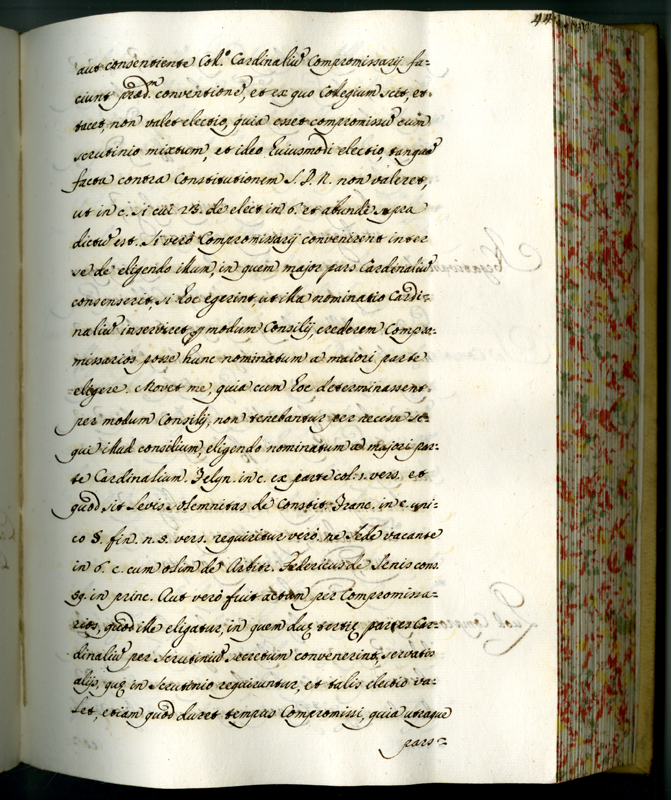 44
aut consentiente Coll.º Cardinaliũ Compromissarij fa=
ciunt præd.m conventionẽ, et ex quo Collegium scit, et
tacet, non valet electio, quia esset compromissũ cum
scrutinio mixtum, et ideo huiusmodi electio, tanquã
facta contra Constitutionem S. D. N. non valeret,
ut in c. si cui 23. de elect. in 6. et abundè supra
dictũ est. Si verò Compromissarij convenirent inter
se de eligendo illum, in quem major pars Cardinaliũ
consenserit, si hoc egerint, ut illa nominatio Cardi=
naliũ inserviret p modum Consilij, crederem Compro=
missarios posse hunc nominatum a maiori parte
eligere. Movet me, quia cum hoc determinassent
per modum Consilij, non tenebantur per necesse se=
qui illud consilium, eligendo nominatum a majori par=
te Cardinalium. Felyn. in c. ex parte col. 1. vers. et
quod sit levis solemnitas de Constit. Franc. in c. uni=
co §. fin. n. 5. vers. requiritur verò. ne Sede vacante
in 6. c. cum olim de Arbitr. Federicus de Senis cons.
59. in princ. Aut verò fuit actum per Compromissa=
rios, quod ille eligatur, in quem duę tertię partes Car=
dinaliũ per scrutiniũ secretum convenerint, servatis
alijs, quę in scrutinio requiruntur, et talis electio va=
let, etiam quod duret tempus Compromissi, quia utraque
pars=